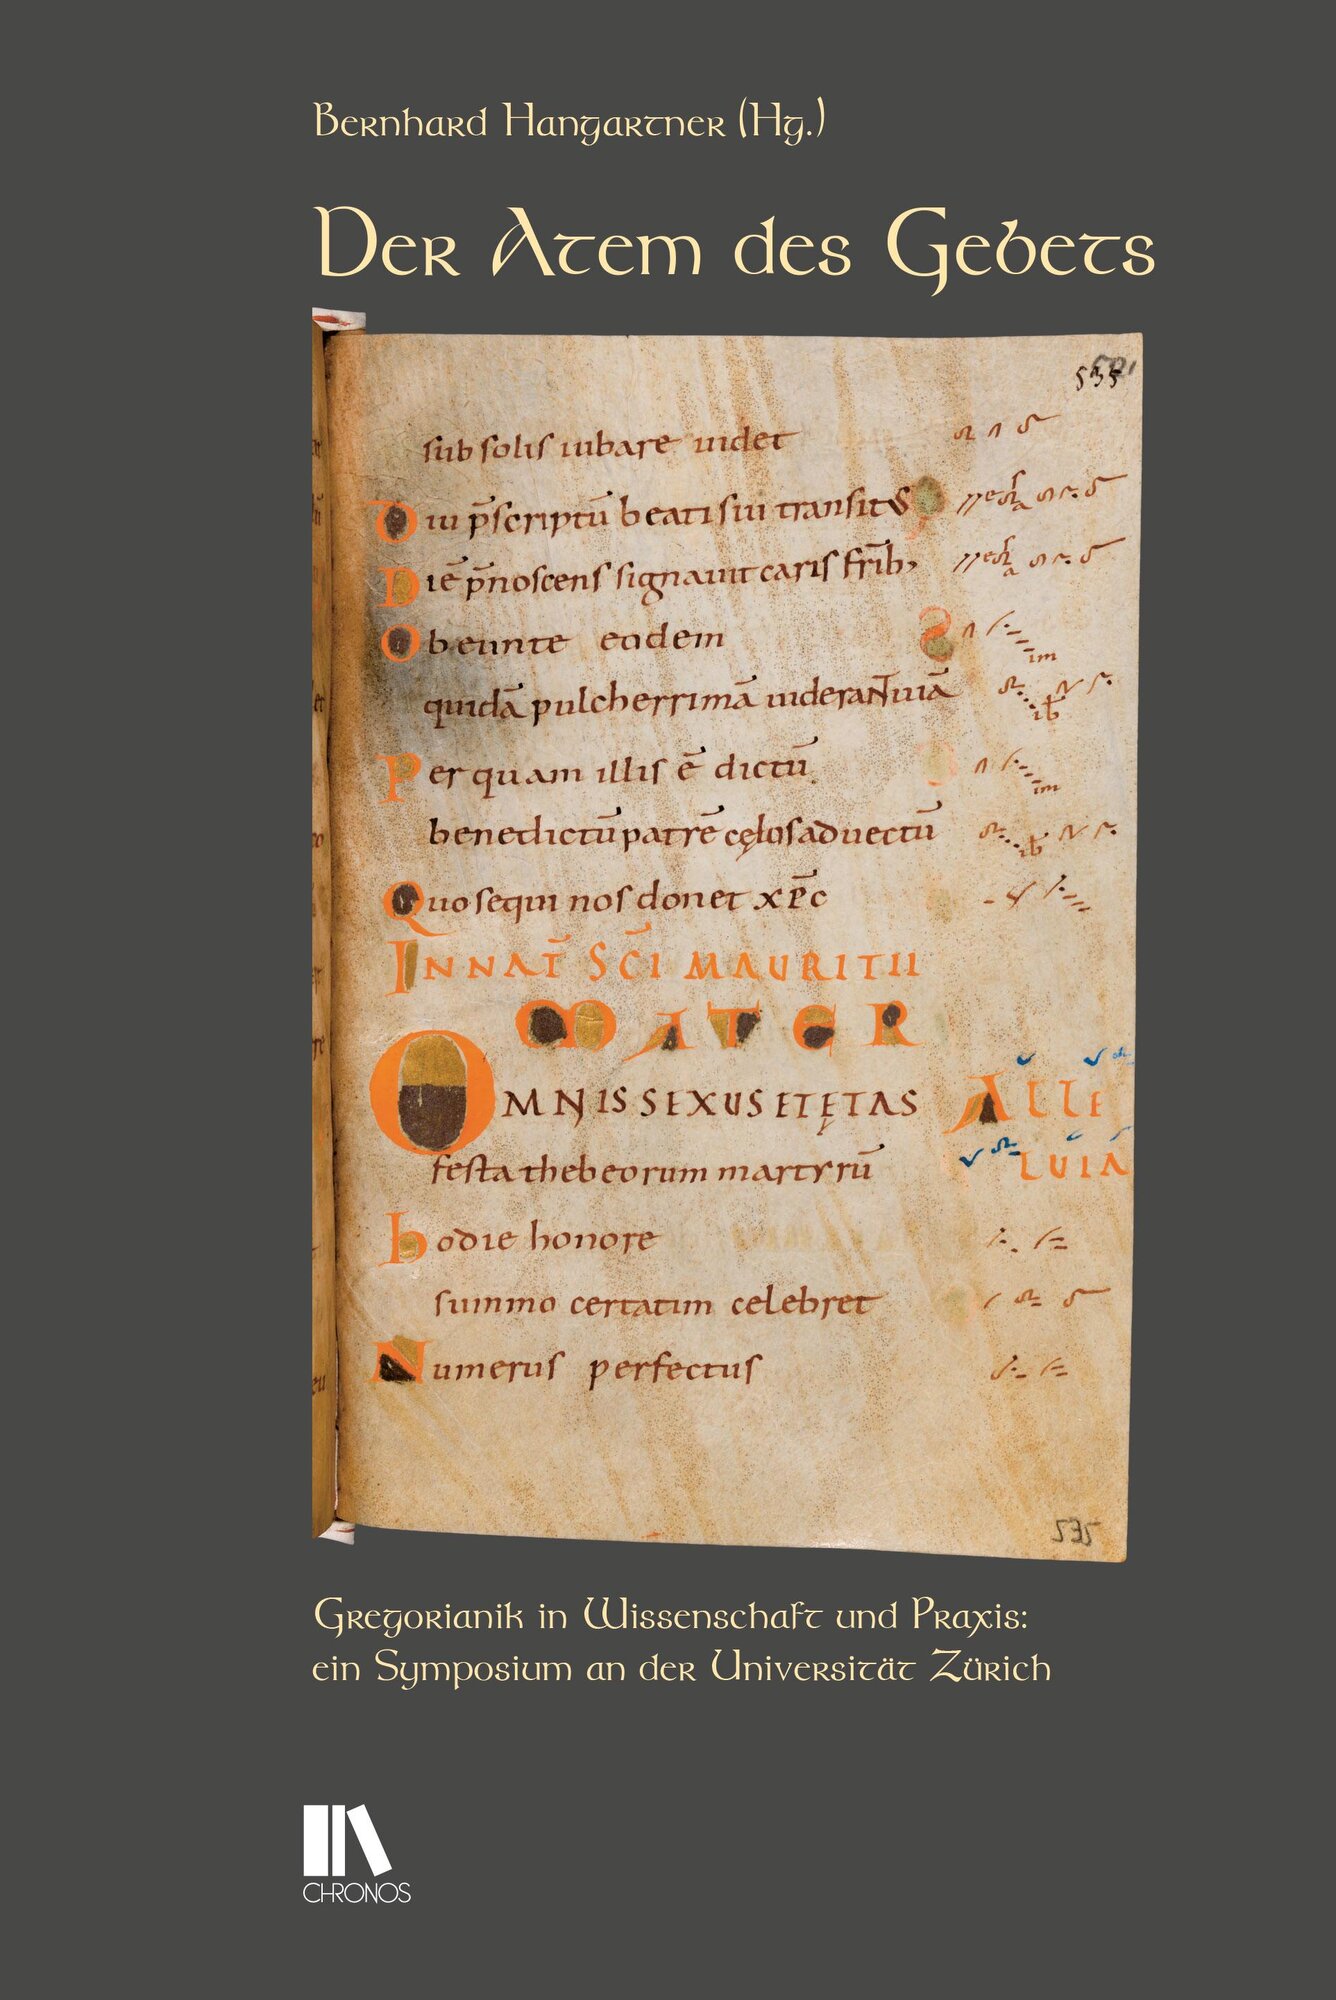 Bernhard Hangartner (Hg.)
Der Atem des Gebets
535
sub solis iubare uidet
Diu p̄scriptū beati sui transitꝰ
Diē p̄noscens signauit caris fr̄ib;
Obeunte eodem S
im
quidā pulcherrimā uiderant uiā
ib
Per quam illis ē dictū
im
benedictū patrē cęlos aduectū
ib
Quo sequi nos donet xp̄c
IN NAT̄ SC̄I MAURITII
MATER
OMNIS SEXUS ET ĘTAS ALLE
festa thebeorum martyrū LUIA
hodie honore
summo certatim celebret
Numerus perfectus
535
Gregorianik in Wissenschaft und Praxis:
ein Symposium an der Universität Zürich
CHRONOS